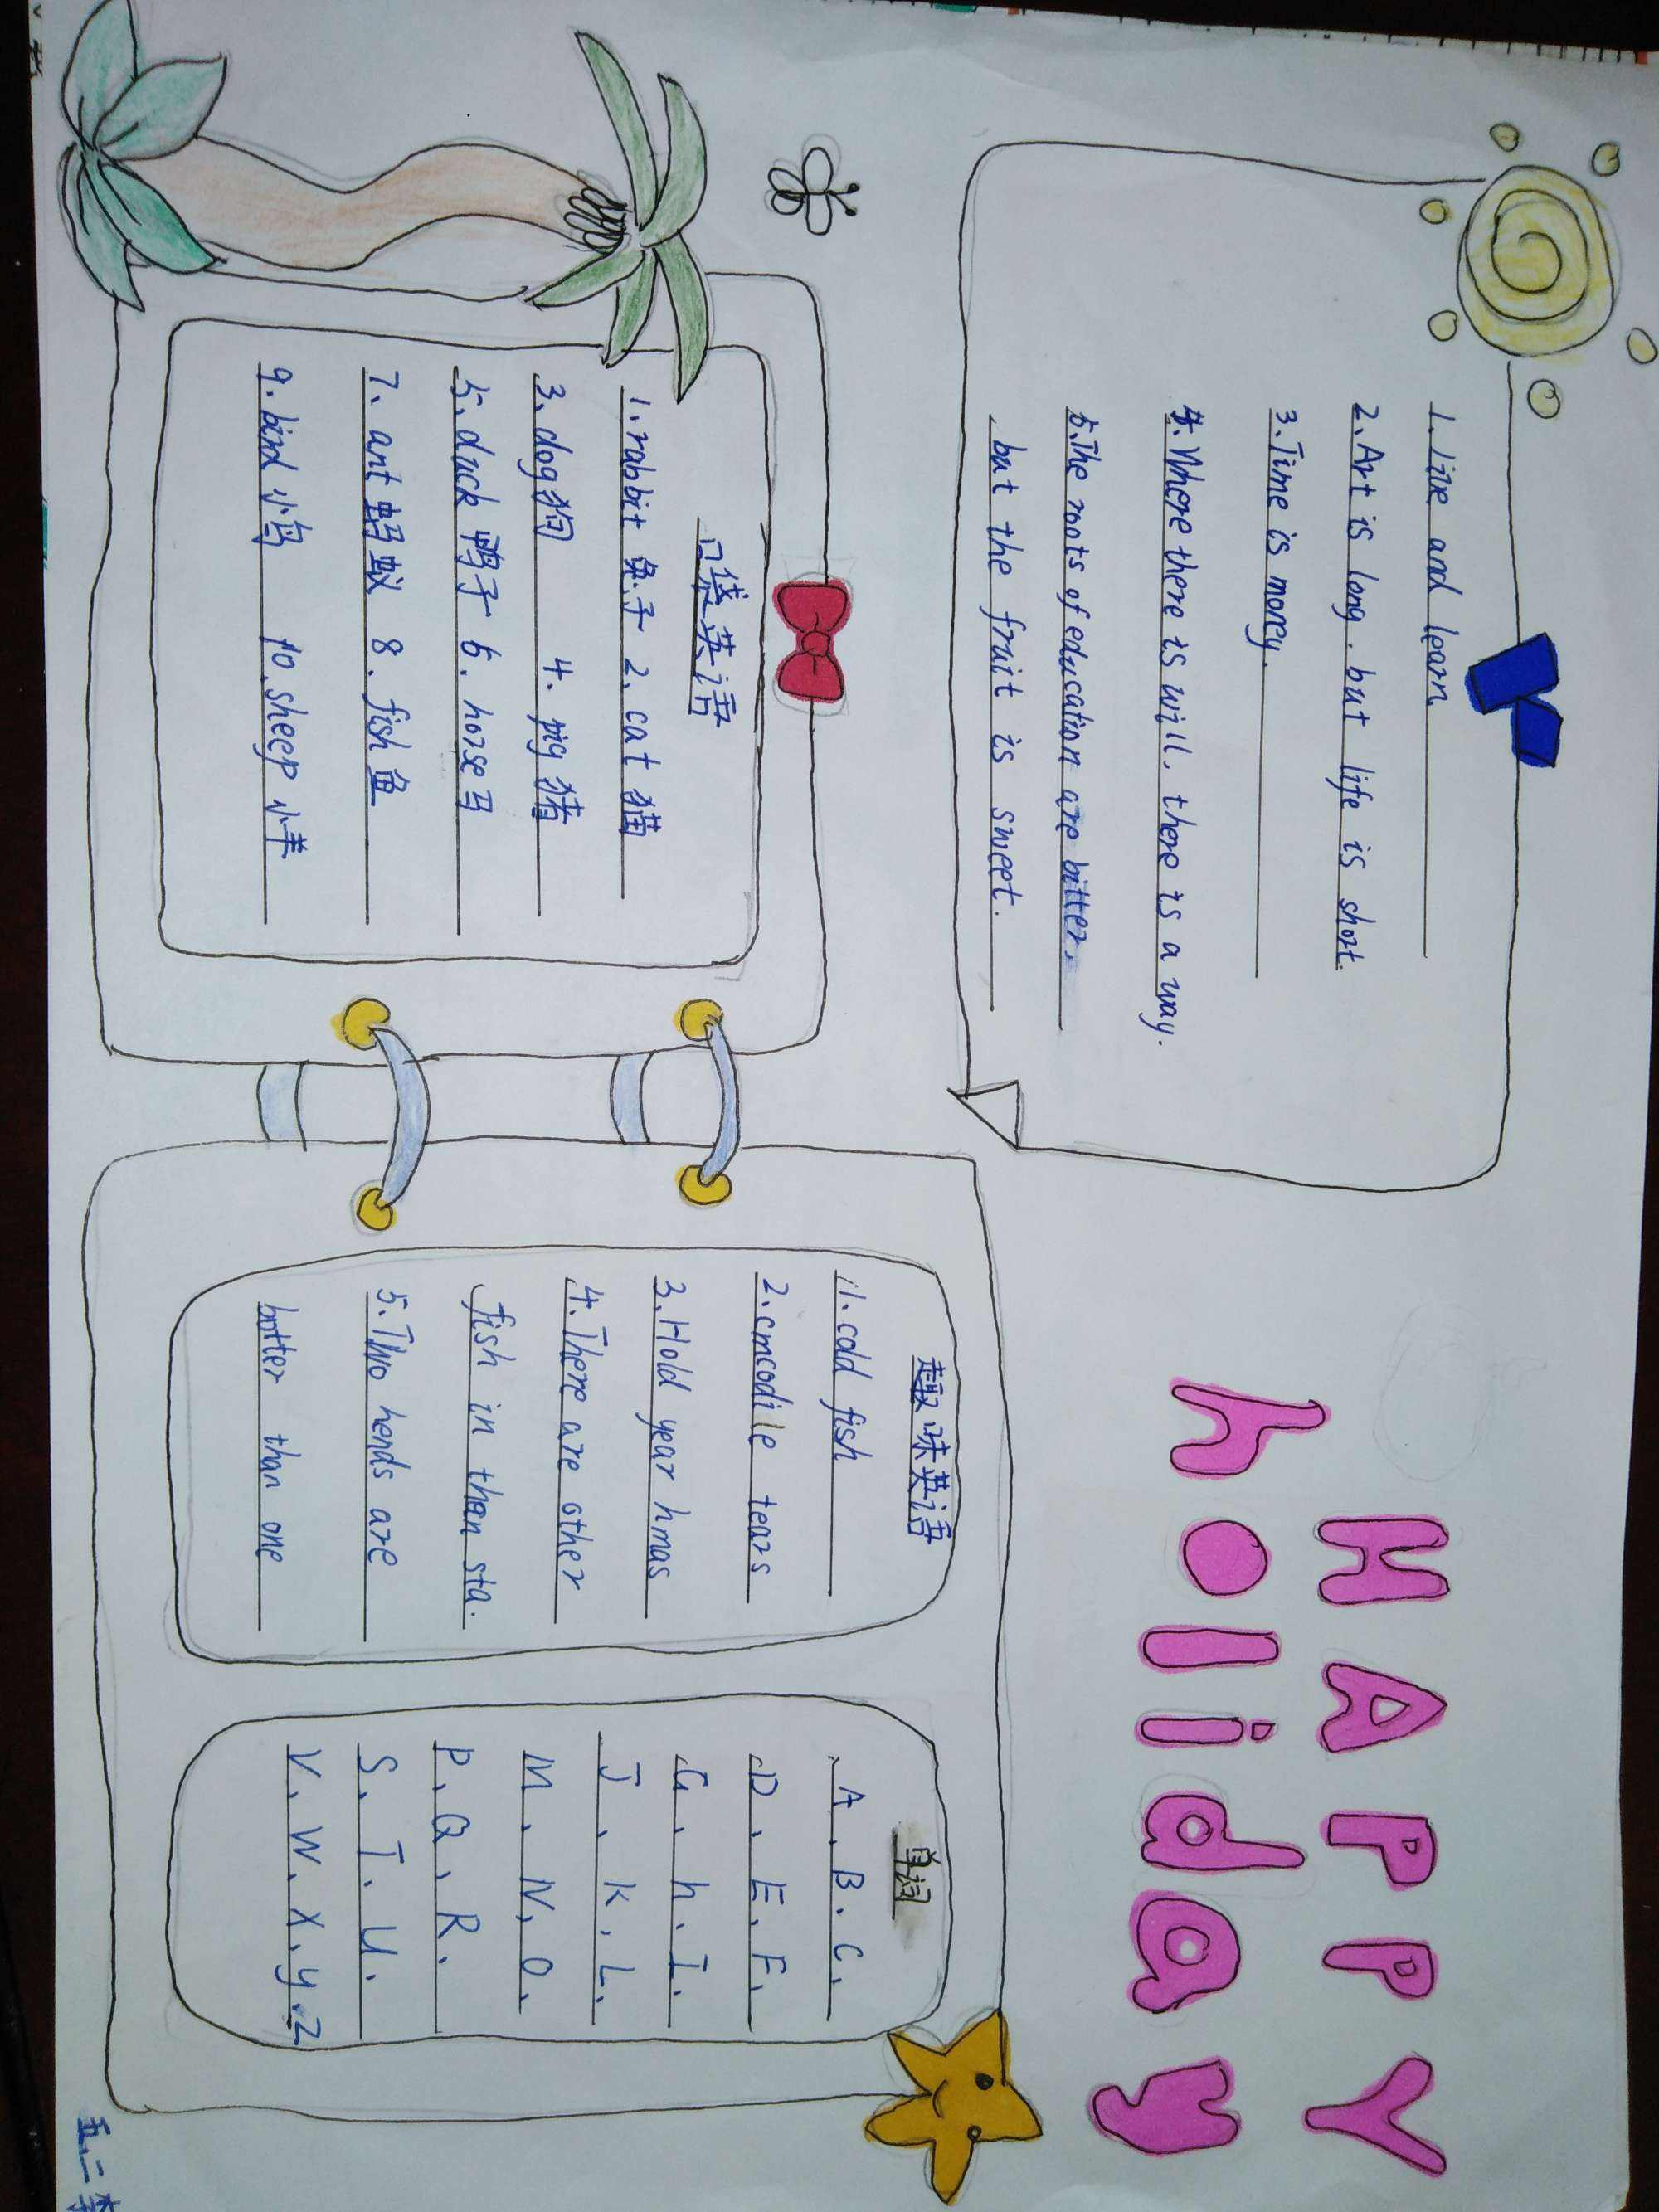 HAPPY
holiday
1. live and learn
2. Art is long. but life is short.
3. Time is morey.
4. Where there is will. there is a way.
5. The roots of education are bitter,
but the fruit is sweet.
口袋英语
1. rabbit 兔子 2. cat 猫
3. dog 狗 4. pig 猪
5. duck 鸭子 6. horse 马
7. ant 蚂蚁 8. fish 鱼
9. bird 小鸟 10. sheep 小羊
趣味英语
1. cold fish
2. cmcodile tears
3. Hold year hmas
4. There are other
fish in than sta.
5. Two hends are
botter than one
单词
A. B. C.
D. E. F.
G. h. I.
J. K. L.
M. N. O.
P. Q. R.
S. T. U.
V. W. X. y. Z
五.二